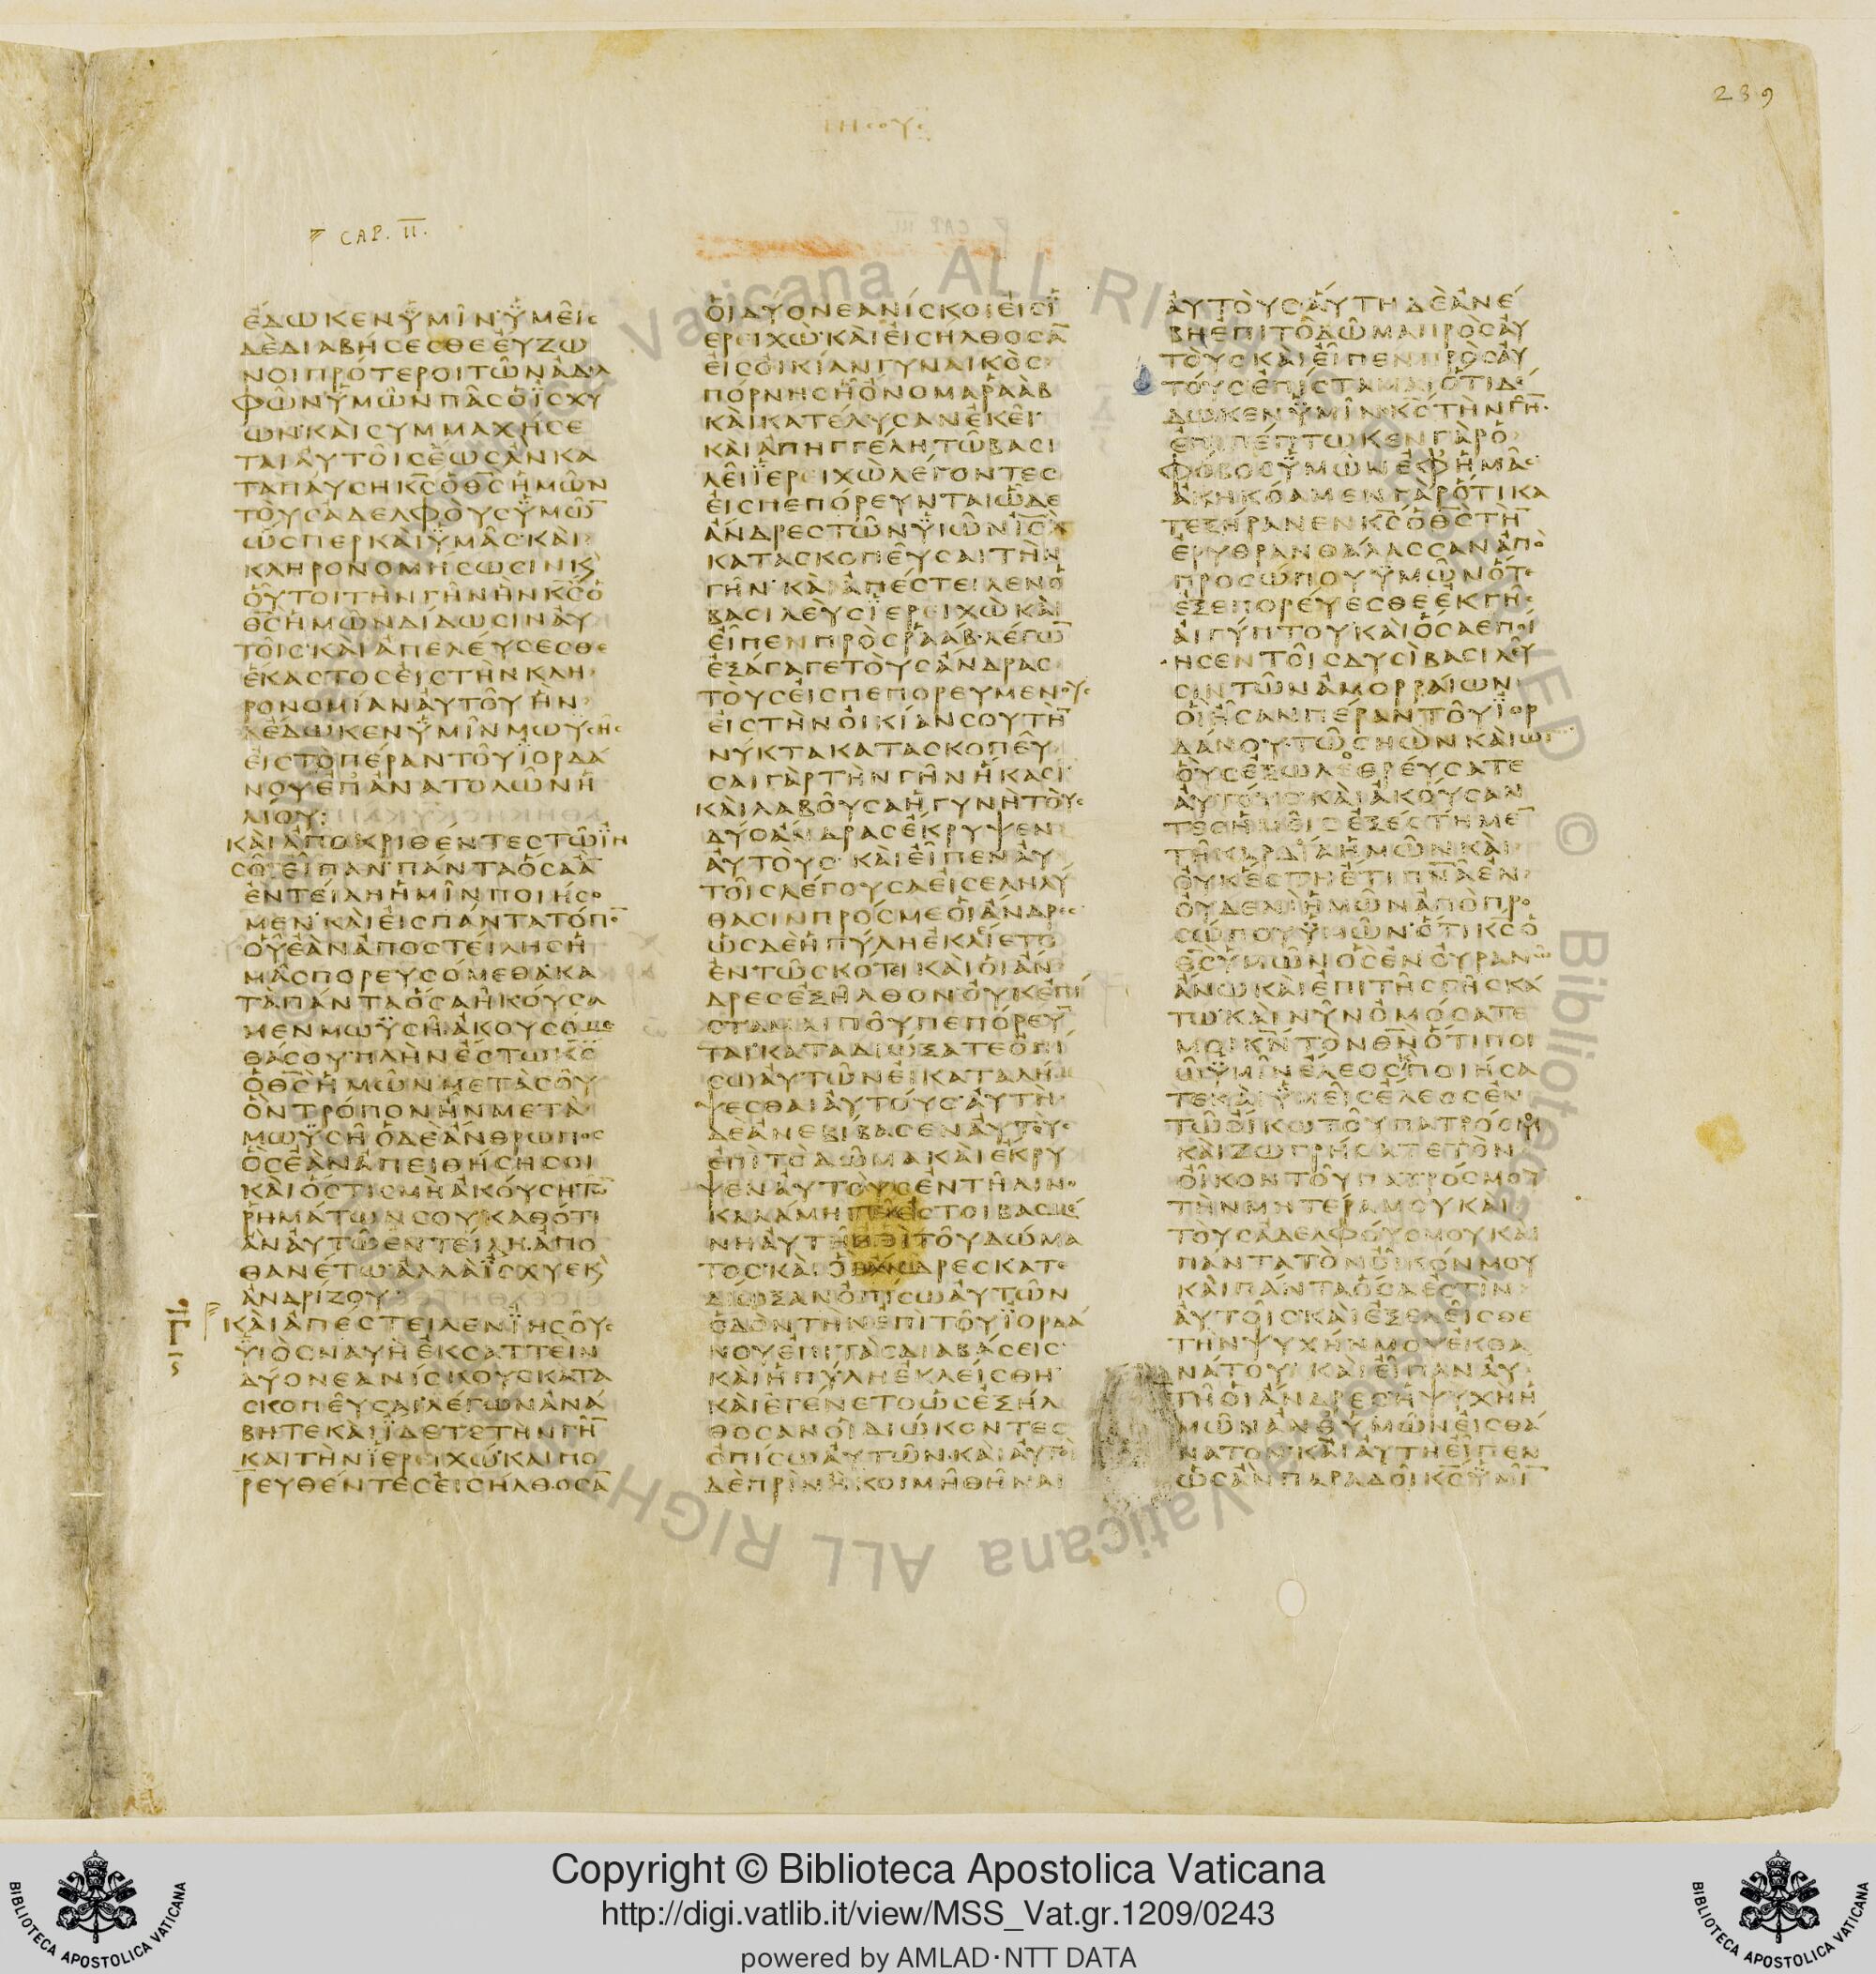 239
ΙΗϹΟΥϹ
CAP. II.
ἔΔωΚΕΝὙΜῖΝ·ὙΜΕῖϹ
ΔὲΔΙΑΒήϹΕϹΘΕΕὔΖω
ΝΟΙΠΡότΕΡΟΙΤῶΝἀΔΕλ
ΦῶΝὙΜῶΝΠᾶϹὁἸϹΧΥ
ωΝ·ΚΑὶϹΥΜΜΑΧήϹΕ
ΤΑΙΑὐΤΟῖϹἕωϹἂΝΚΑ
ΤΑΠΑύϹΗΚ̅Ϲ̅ὁΘ̅Ϲ̅ἡΜῶΝ
ΤΟὺϹἀΔΕΛΦΟὺϹὙΜῶ̅
ὥϹΠΕΡΚΑὶὙΜᾶϹ·ΚΑὶ
ΚΛΗΡΟΝΟΜήϹωϹΙΝΚ̀
ΟὗΤΟΙΤὴΝΓῆΝἣΝΚ̅Ϲ̅ὁ
Θ̅Ϲ̅ἡΜῶΝΔίΔωϹΙΝΑὐ
ΤΟῖϹ·ΚΑὶἀΠΕΛΕύϹΕϹΘΕ
ἕΚΑϹΤΟϹΕἰϹΤὴΝΚΛΗ
ΡΟΝΟΜίΑΝΑὐΤΟῦἣΝ
ΔέΔωΚΕΝὙΜῖΝΜωΥϹῆϹ
ΕἰϹΤὸΠέΡΑΝΤΟῦἸΟΡΔά
ΝΟΥἐΠἀΝΑΤΟΛῶΝἡ
ΛίΟΥ:
ΚΑὶἀΠΟΚΡΙΘέΝΤΕϹΤῶἸΗ
ϹΟῖΕἶΠΑΝ·ΠάΝΤΑὅϹΑἂ̅
ἐΝΤΕίΛΗἡΜῖΝΠΟΙήϹΟ
ΜΕΝ·ΚΑὶΕἰϹΠάΝΤΑΤόΠΟ̅
ΟὗἐὰΝἀΠΟϹΤΕίΛΗϹἡ
ΜᾶϹΠΟΡΕΥϹόΜΕΘΑ·ΚΑ
ΤὰΠάΝΤΑὅϹΑἠΚΟύϹΑ
ΜΕΝΜωΫϹῆἀΚΟΥϹόΜΕ
ΘάϹΟΥ·ΠΛὴΝἔϹΤωΚ̅Ϲ̅
ὁΘ̅Ϲ̅ἡΜῶΝΜΕΤὰϹΟῦ
ὃΝΤΡόΠΟΝἦΝΜΕΤὰ
ΜωΫϹῆ·ὁΔὲἄΝΘΡωΠΟϹ
ὃϹἐὰΝἀΠΕΙΘήϹΗϹΟΙ
ΚΑὶὅϹΤΙϹΜὴἀΚΟύϹΗΤῶ̅
ῥΗΜάΤωΝϹΟΥΚΑΘόΤΙ
ἂΝΑὐΤῶἐΝΤΕίΛΗ·ἀΠΟ
ΘΑΝέΤω·ἀΛΛὰἴϹΧΥΕΚ̀
ἀΝΔΡίΖΟΥ·
ΚΑὶἀΠέϹΤΕΙΛΕΝἸΗϹΟῦϹ
ὙΙὸϹΝΑΥὴἐΚϹΑΤΤΕὶΝ
ΔύΟΝΕΑΝίϹΚΟΥϹΚΑΤΑ
ϹΚΟΠΕῦϹΑΙ·ΛέΓωΝἀΝά
ΒΗΤΕΚΑὶἴΔΕΤΕΤὴΝΓῆ̅
ΚΑὶΤὴΝἸΕΡΕΙΧώ·ΚΑὶΠΟ
ΡΕΥΘέΝΤΕϹΕἰϹήΛΘΟϹΑ̅
ΟἱΔύΟΝΕΑΝίϹΚΟΙΕἰϹἸ
ΕΡΕΙΧώ·ΚΑὶΕἰϹήΛΘΟϹΑ̅
ΕἰϹΟἰΚίΑΝΓΥΝΑΙΚὸϹ
ΠόΡΝΗϹᾗὄΝΟΜΑῥΑὰΒ
ΚΑὶΚΑΤέΛΥϹΑΝἐΚΕῖ·
ΚΑὶἀΠΗΓΓέΛΗΤῶΒΑϹΙ
ΛΕῖἸΕΡΕΙΧὼΛέΓΟΝΤΕϹ
ΕἰϹΠΕΠόΡΕΥΝΤΑΙὧΔΕ
ἄΝΔΡΕϹΤῶΝὙΙῶΝΙ̅Ϲ̅Λ̅
ΚΑΤΑϹΚΟΠΕῦϹΑΙΤὴΝ
ΓῆΝ·ΚΑὶἀΠέϹΤΕΙΛΕΝὁ
ΒΑϹΙΛΕὺϹἸΕΡΕΙΧὼΚΑὶ
ΕἶΠΕΝΠΡὸϹῥΑὰΒ·ΛέΓω̅
ἐΞάΓΑΓΕΤΟὺϹἄΝΔΡΑϹ
ΤΟὺϹΕἰϹΠΕΠΟΡΕΥΜέΝΟΥϹ
ΕἰϹΤὴΝΟἰΚίΑΝϹΟΥΤὴ̅
ΝύΚΤΑΚΑΤΑϹΚΟΠΕῦ
ϹΑΙΓὰΡΤὴΝΓῆΝἥΚΑϹΙ·
ΚΑὶΛΑΒΟῦϹΑἡΓΥΝὴΤΟὺϹ
ΔύΟἄΝΔΡΑϹἔΚΡΥΨΕΝ
ΑὐΤΟὺϹ·ΚΑὶΕἶΠΕΝΑὐ
ΤΟῖϹΛέΓΟΥϹΑΕἰϹΕΛΗΛύ
ΘΑϹΙΝΠΡόϹΜΕΟἱἄΝΔΡΕϹ
ὡϹΔὲἡΠύΛΗἐΚΛΕίΕΤΟ
ἐΝΤῶϹΚόΤΕΙΚΑὶΟἱἄΝ
ΔΡΕϹἐΞῆΛΘΟΝ·ΟὐΚἐΠί
ϹΤΑΜΑΙΠΟῦΠΕΠόΡΕΥ̅
ΤΑΙ·ΚΑΤΑΔΙώΞΑΤΕὀΠί
ϹωΑὐΤῶΝΕἰΚΑΤΑΛή
ΨΕϹΘΑΙΑὐΤΟύϹ·ΑὐΤὴ
ΔὲἀΝΕΒίΒΑϹΕΝΑὐΤΟὺϹ
ἐΠὶΤὸΔῶΜΑΚΑὶἔΚΡΥ
ΨΕΝΑὐΤΟὺϹἐΝΤῆΛΙΝΟ
ΚΑΛάΜΗΤῆἐϹΤΟΙΒΑϹΜέ
ΝΗΑὐΤῆἐΠὶΤΟῦΔώΜΑ
ΤΟϹ·ΚΑὶΟἱἄΝΔΡΕϹΚΑΤΕ
ΔίωΞΑΝὀΠίϹωΑὐΤῶΝ
ὁΔὸΝΤὴΝἐΠὶΤΟῦἸΟΡΔά
ΝΟΥἐΠὶΤὰϹΔΙΑΒάϹΕΙϹ·
ΚΑὶἡΠύΛΗἐΚΛΕίϹΘΗ·
ΚΑὶἐΓέΝΕΤΟὡϹἐΞήΛ
ΘΟϹΑΝΟἱΔΙώΚΟΝΤΕϹ
ὀΠίϹωΑὐΤῶΝ·ΚΑὶΑὐΤΟὶ
ΔὲΠΡὶΝἢΚΟΙΜΗΘῆΝΑΙ
ΑὐΤΟὺϹ·ΑὕΤΗΔὲἀΝέ
ΒΗἐΠὶΤὸΔῶΜΑΠΡὸϹΑὐ
ΤΟὺϹΚΑὶΕἶΠΕΝΠΡὸϹΑὐ
ΤΟύϹἐΠίϹΤΑΜΑΙὅΤΙΔέ
ΔωΚΕΝὙΜῖΝΚ̅Ϲ̅ΤὴΝΓῆΝ·
ἐΠΙΠέΠΤωΚΕΝΓὰΡὁ
ΦόΒΟϹὙΜῶΝἐΦἡΜᾶϹ·
ἀΚΗΚόΑΜΕΝΓὰΡὅΤΙΚΑ
ΤΕΞήΡΑΝΕΝΚ̅Ϲ̅ὁΘ̅Ϲ̅Τὴ̅
ἐΡΥΘΡὰΝΘάΛΑϹϹΑΝἀΠὸ
ΠΡΟϹώΠΟΥὙΜῶΝὅΤΕ
ἐΞΕΠΟΡΕύΕϹΘΕἐΚΓῆϹ
ΑἰΓύΠΤΟΥ·ΚΑὶὅϹΑἐΠΟί
ΗϹΕΝΤΟῖϹΔΥϹὶΒΑϹΙΛΕῦ
ϹΙΝΤῶΝἀΜΟΡΡΑίωΝ
ΟἳἦϹΑΝΠέΡΑΝΤΟῦἸΟΡ
ΔάΝΟΥ·ΤῶϹΗὼΝΚΑὶὢΓ
ΟὓϹἐΞωΛΕΘΡΕύϹΑΤΕ
ΑὐΤΟύϹ·ΚΑὶἀΚΟύϹΑΝ
ΤΕϹἡΜΕῖϹἐΞέϹΤΗΜΕ̅
ΤῆΚΑΡΔίΑἡΜῶΝ·ΚΑὶ
ΟὐΚἔϹΤΗἔΤΙΠ̅Ν̅Α̅ἐΝ
ΟὐΔΕΝὶἡΜῶΝἀΠὸΠΡΟ
ϹώΠΟΥὙΜῶΝ·ὅΤΙΚ̅Ϲ̅ὁ
Θ̅Ϲ̅ὑΜῶΝὃϹἐΝΟὐΡΑΝῶ
ἄΝωΚΑὶἐΠὶΤῆϹΓῆϹΚά
Τω·ΚΑὶΝῦΝὀΜόϹΑΤΕ
ΜΟΙΚ̅Ν̅ΤὸΝΘ̅Ν̅ὅΤΙΠΟΙ
ῶὙΜῖΝἔΛΕΟϹΚ̀ΠΟΙήϹΑ
ΤΕΚΑὶὙΜΕῖϹἔΛΕΟϹἐΝ
ΤῶΟἴΚωΤΟῦΠΑΤΡόϹΜΟΥ
ΚΑὶΖωΓΡήϹΑΤΕΤὸΝ
ΟἶΚΟΝΤΟῦΠΑΤΡόϹΜΟΥ
ΤὴΝΜΗΤέΡΑΜΟΥΚΑὶ
ΤΟὺϹἀΔΕΛΦΟύϹΜΟΥΚΑὶ
ΠάΝΤΑΤὸΝΟἶΚόΝΜΟΥ
ΚΑὶΠάΝΤΑὅϹΑἐϹΤὶΝ
ΑὐΤΟῖϹ·ΚΑὶἐΞΕΛΕῖϹΘΕ
ΤὴΝΨΥΧήΝΜΟΥἐΚΘΑ
ΝάΤΟΥ·ΚΑὶΕἶΠΑΝΑὐ
ΤῆΟἱἄΝΔΡΕϹἡΨΥΧὴἡ
ΜῶΝἀΝΘὑΜῶΝΕἰϹΘά
ΝΑΤΟΝ·ΚΑὶΑὐΤὴΕἶΠΕΝ
ὡϹἂΝΠΑΡΑΔΟῖΚ̅Ϲ̅ὙΜῖ̅
Copyright © Biblioteca Apostolica Vaticana
http://digi.vatlib.it/view/MSS_Vat.gr.1209/0243
powered by AMLAD·NTT DATA
BIBLIOTECA APOSTOLICA VATICANA
BIBLIOTECA APOSTOLICA VATICANA